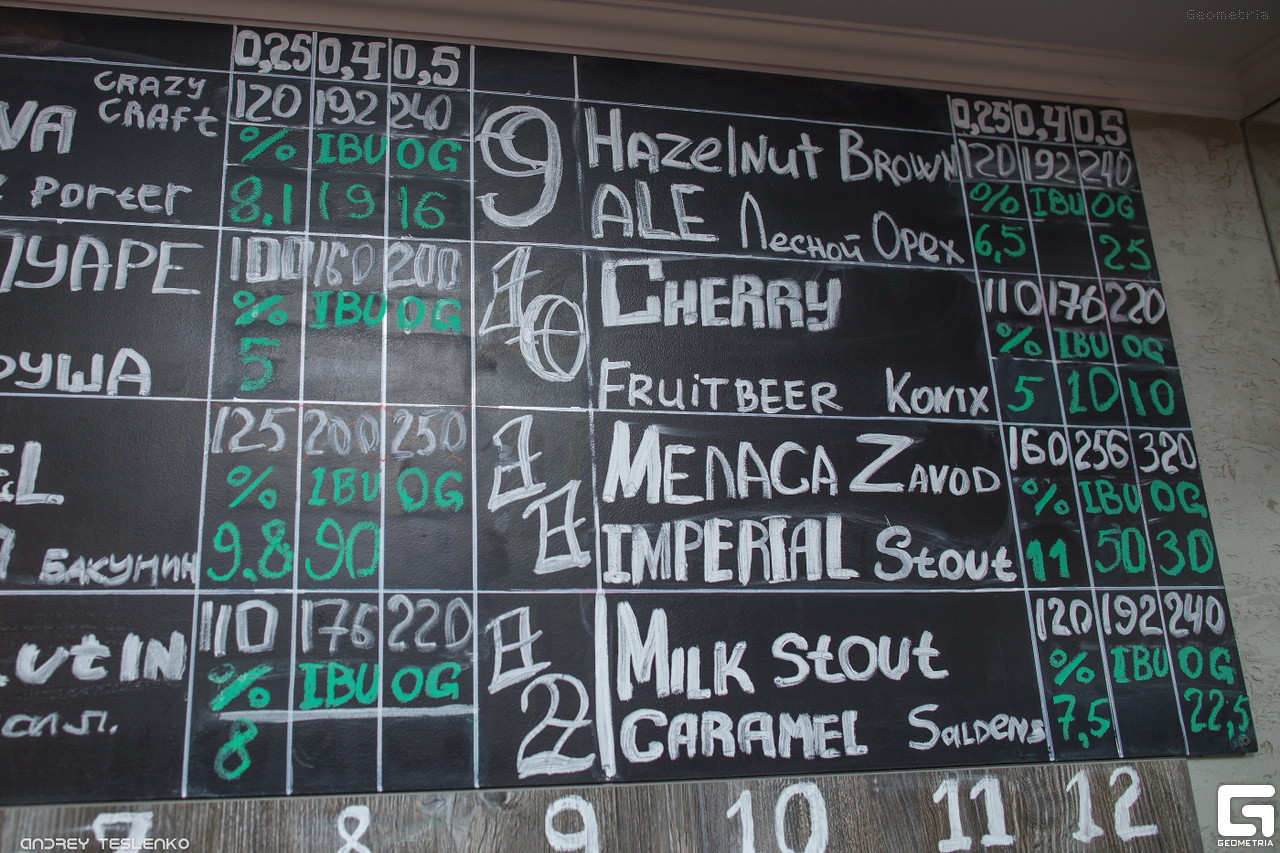 Geometria
0,25 0,4 0,5
CRAZY
CRAFT
120 192 240
% IBU OG
PORTER
8.1 19 16
100 160 200
% IBU OG
5
125 200 250
% IBU OG
БАКУНИН
9.8 90
110 176 220
% IBU OG
8
0,25 0,4 0,5
9 HAZELNUT BROWN
120 192 240
ALE ЛЕСНОЙ ОРЕХ
% IBU OG
6,5 25
10 CHERRY
110 176 220
% IBU OG
FRUITBEER KONIX
5 10 10
11 MEЛAGA ZAVOD
160 256 320
% IBU OG
IMPERIAL STOUT
11 50 30
12 MILK STOUT
120 192 240
% IBU OG
CARAMEL SALDENS
7,5 22,5
7 8 9 10 11 12
ANDREY TESLENKO
GEOMETRIA